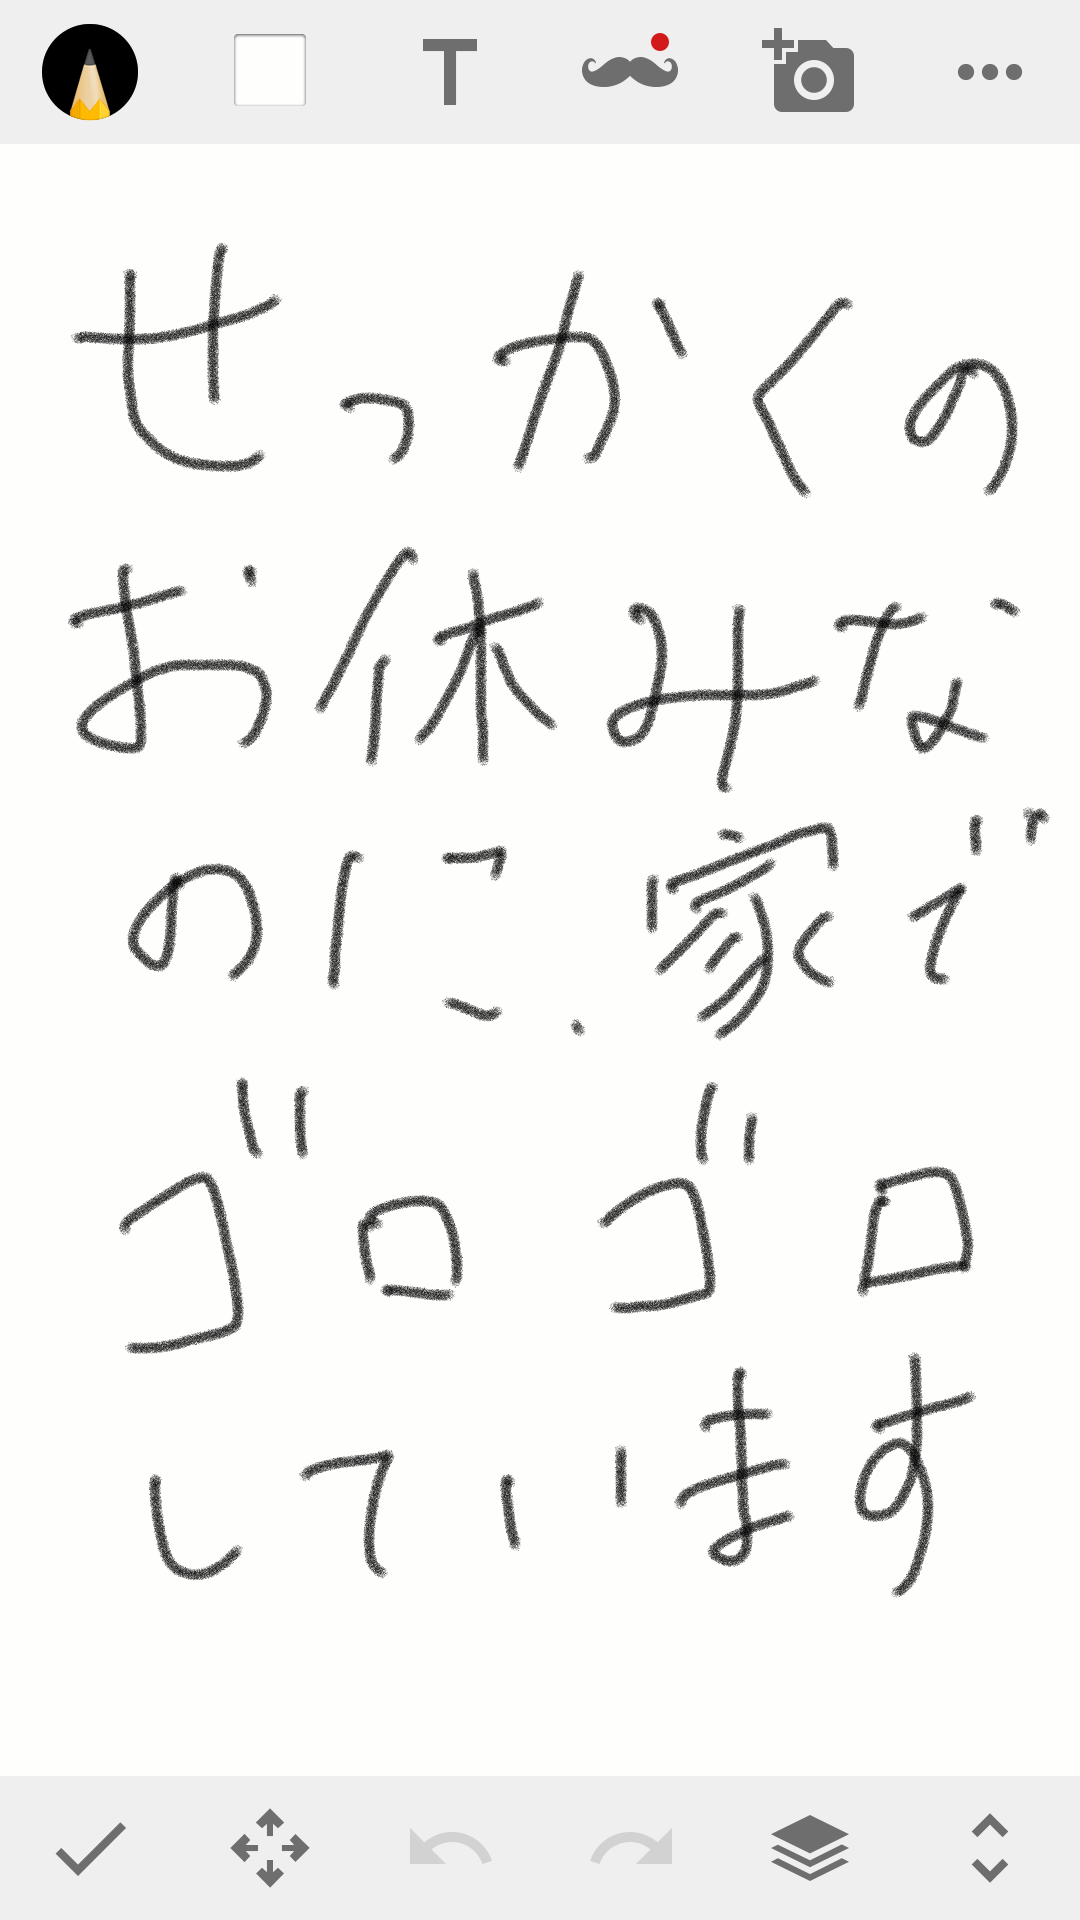 T
せっかくの
お休みな
のに、家で
ゴロゴロ
しています